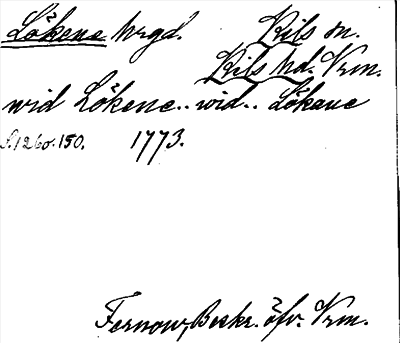 Lökene hrgd. Kils sn.
Kils hd. Vrm.
wid Lökene.. wid.. Lökene
s. 126 o. 150. 1773.
Fernow, Beskr. öfv. Vrm.